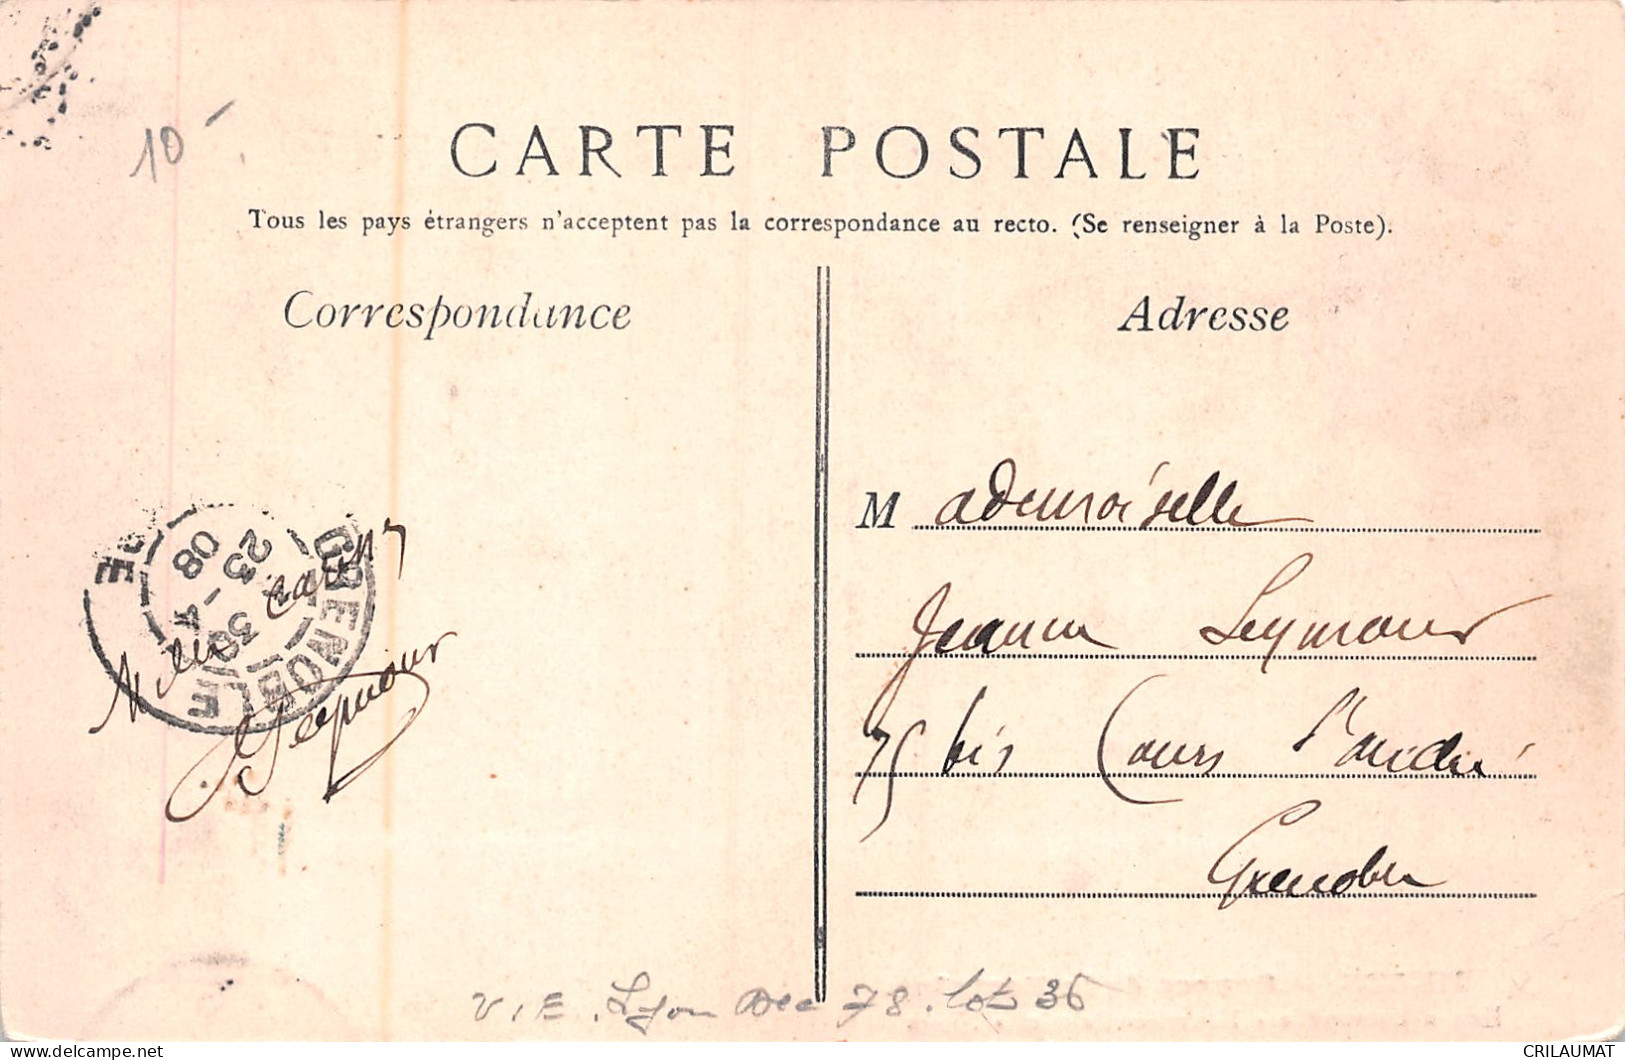 10 -
CARTE POSTALE
Tous les pays étrangers n'acceptent pas la correspondance au recto. (Se renseigner à la Poste).
Correspondance
Adresse
GRENOBLE
23 - 4
08
30
Mille
Seymour
Mademoiselle
Jeanne Seymour
75 bis Cours
Grenoble
V.I.E. Lyon Dec 78. lot 36
CRILAUMAT